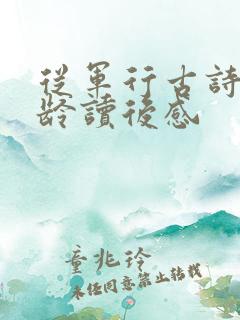 從軍行古詩
齡讀後感
童兆玲
未经同意禁止转载